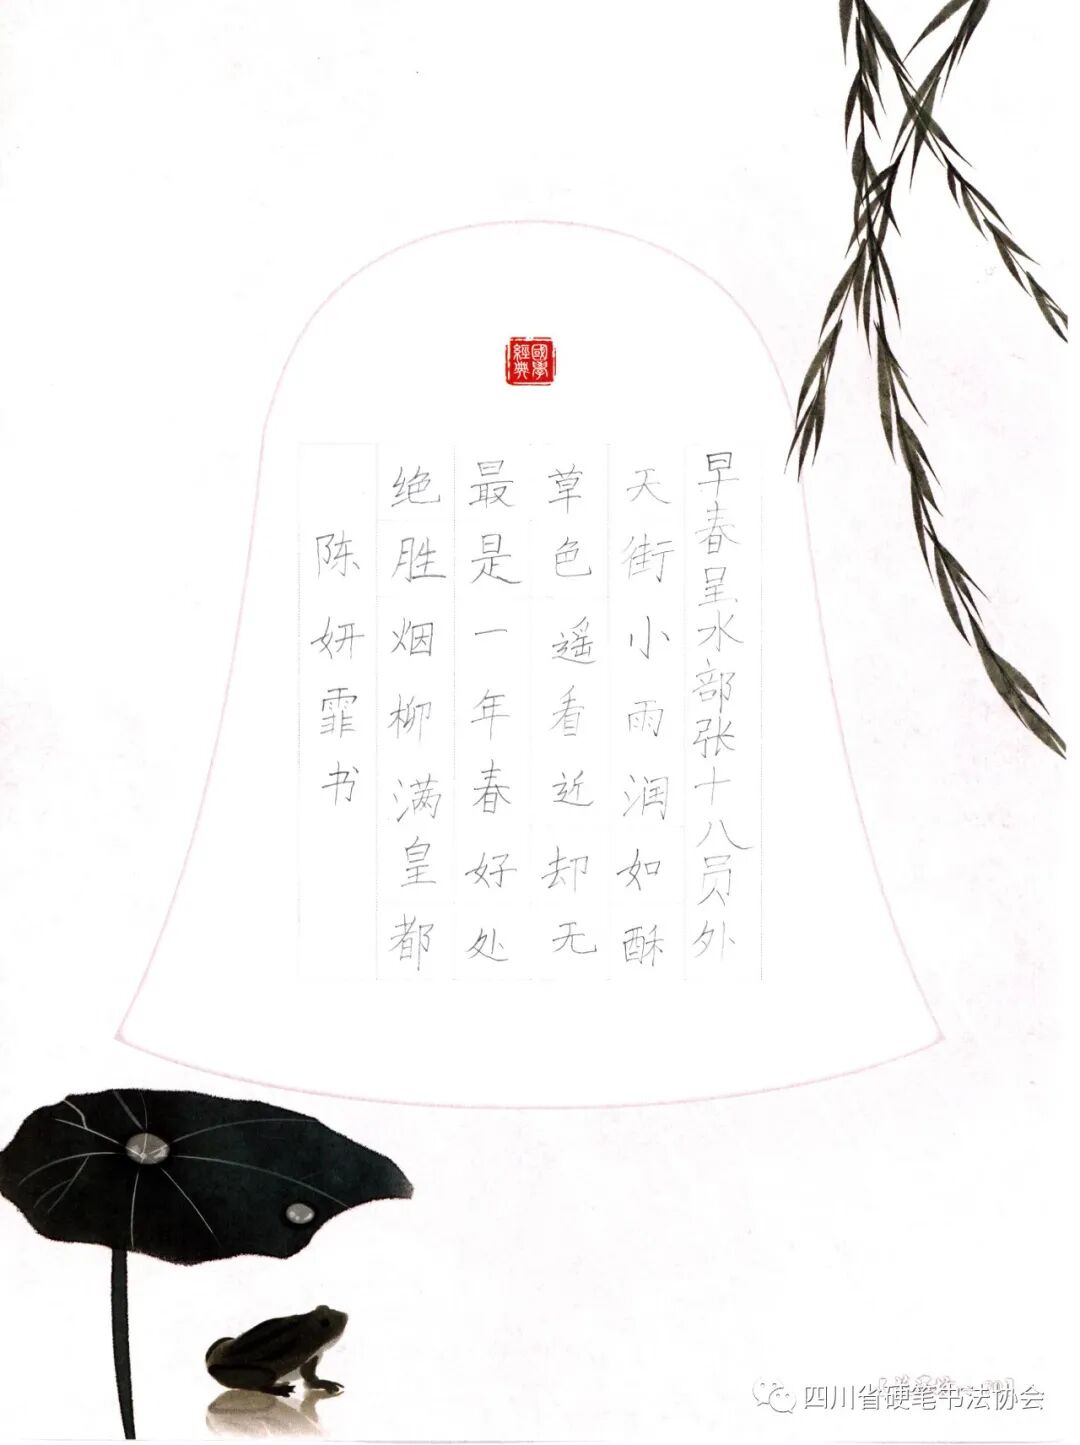 國學
經典
早春呈水部张十八员外
天街小雨润如酥
草色遥看近却无
最是一年春好处
绝胜烟柳满皇都
陈妍霏书
四川省硬笔书法协会